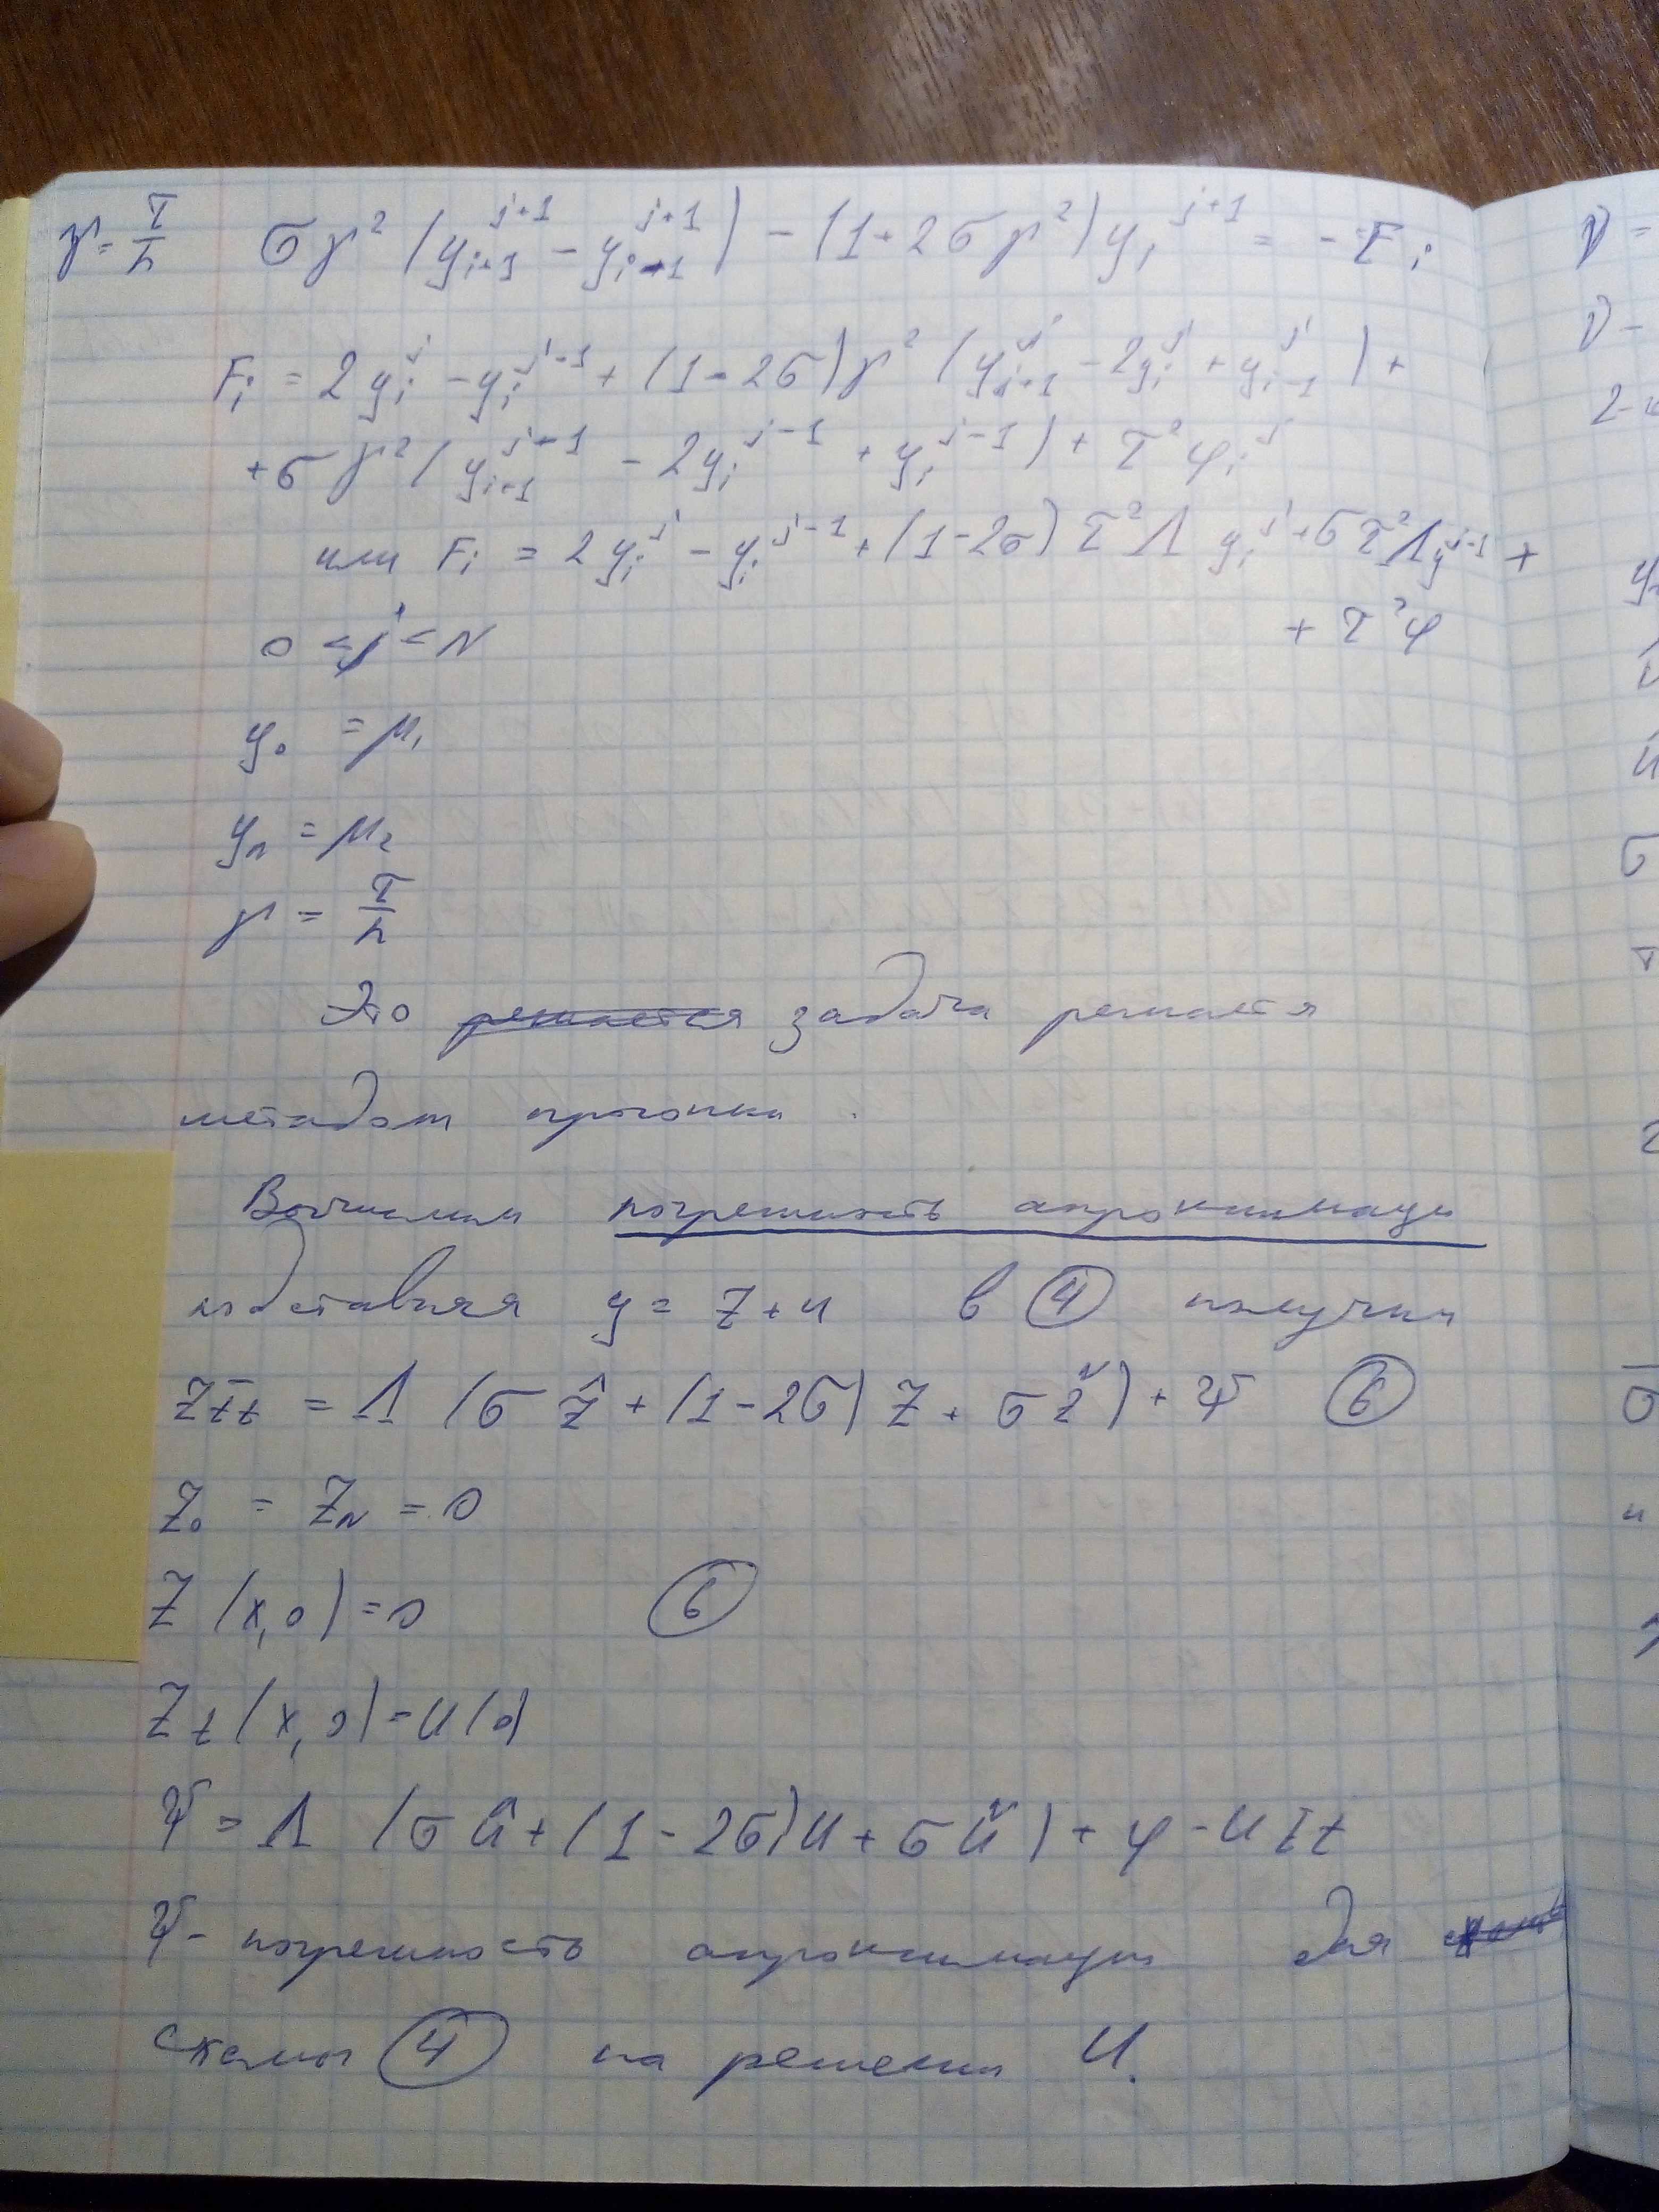 γ = τ/h   σγ² (y_{i+1}^{j+1} - y_{i-1}^{j+1}) - (1+2σγ²) y_i^{j+1} = - F_i
F_i = 2y_i^j - y_i^{j-1} + (1-2σ)γ² (y_{i+1}^j - 2y_i^j + y_{i-1}^j) +
+ σγ² (y_{i+1}^{j-1} - 2y_i^{j-1} + y_i^{j-1}) + τ²φ_i^j
или F_i = 2y_i^j - y_i^{j-1} + (1-2σ) τ²Λ y_i^j + στ²Λy^{j-1} +
+ τ²φ
0 < j < N
y_0 = μ_1
y_n = μ_2
γ = τ/h
Это решается задача решается
методом прогонки.
Вычислим погрешность апроксимации
подставляя y = z + u в ④ получим
z_{t̄t} = Λ (σẑ + (1-2σ) z + σž) + ψ ⑥
z_0 = z_N = 0
z (x,0) = 0 ⑥
z_t (x,0) = u(0)
ψ = Λ (σû + (1-2σ)u + σǔ) + φ - u_{t̄t}
ψ - погрешность апроксимации для
схемы ④ на решении u.